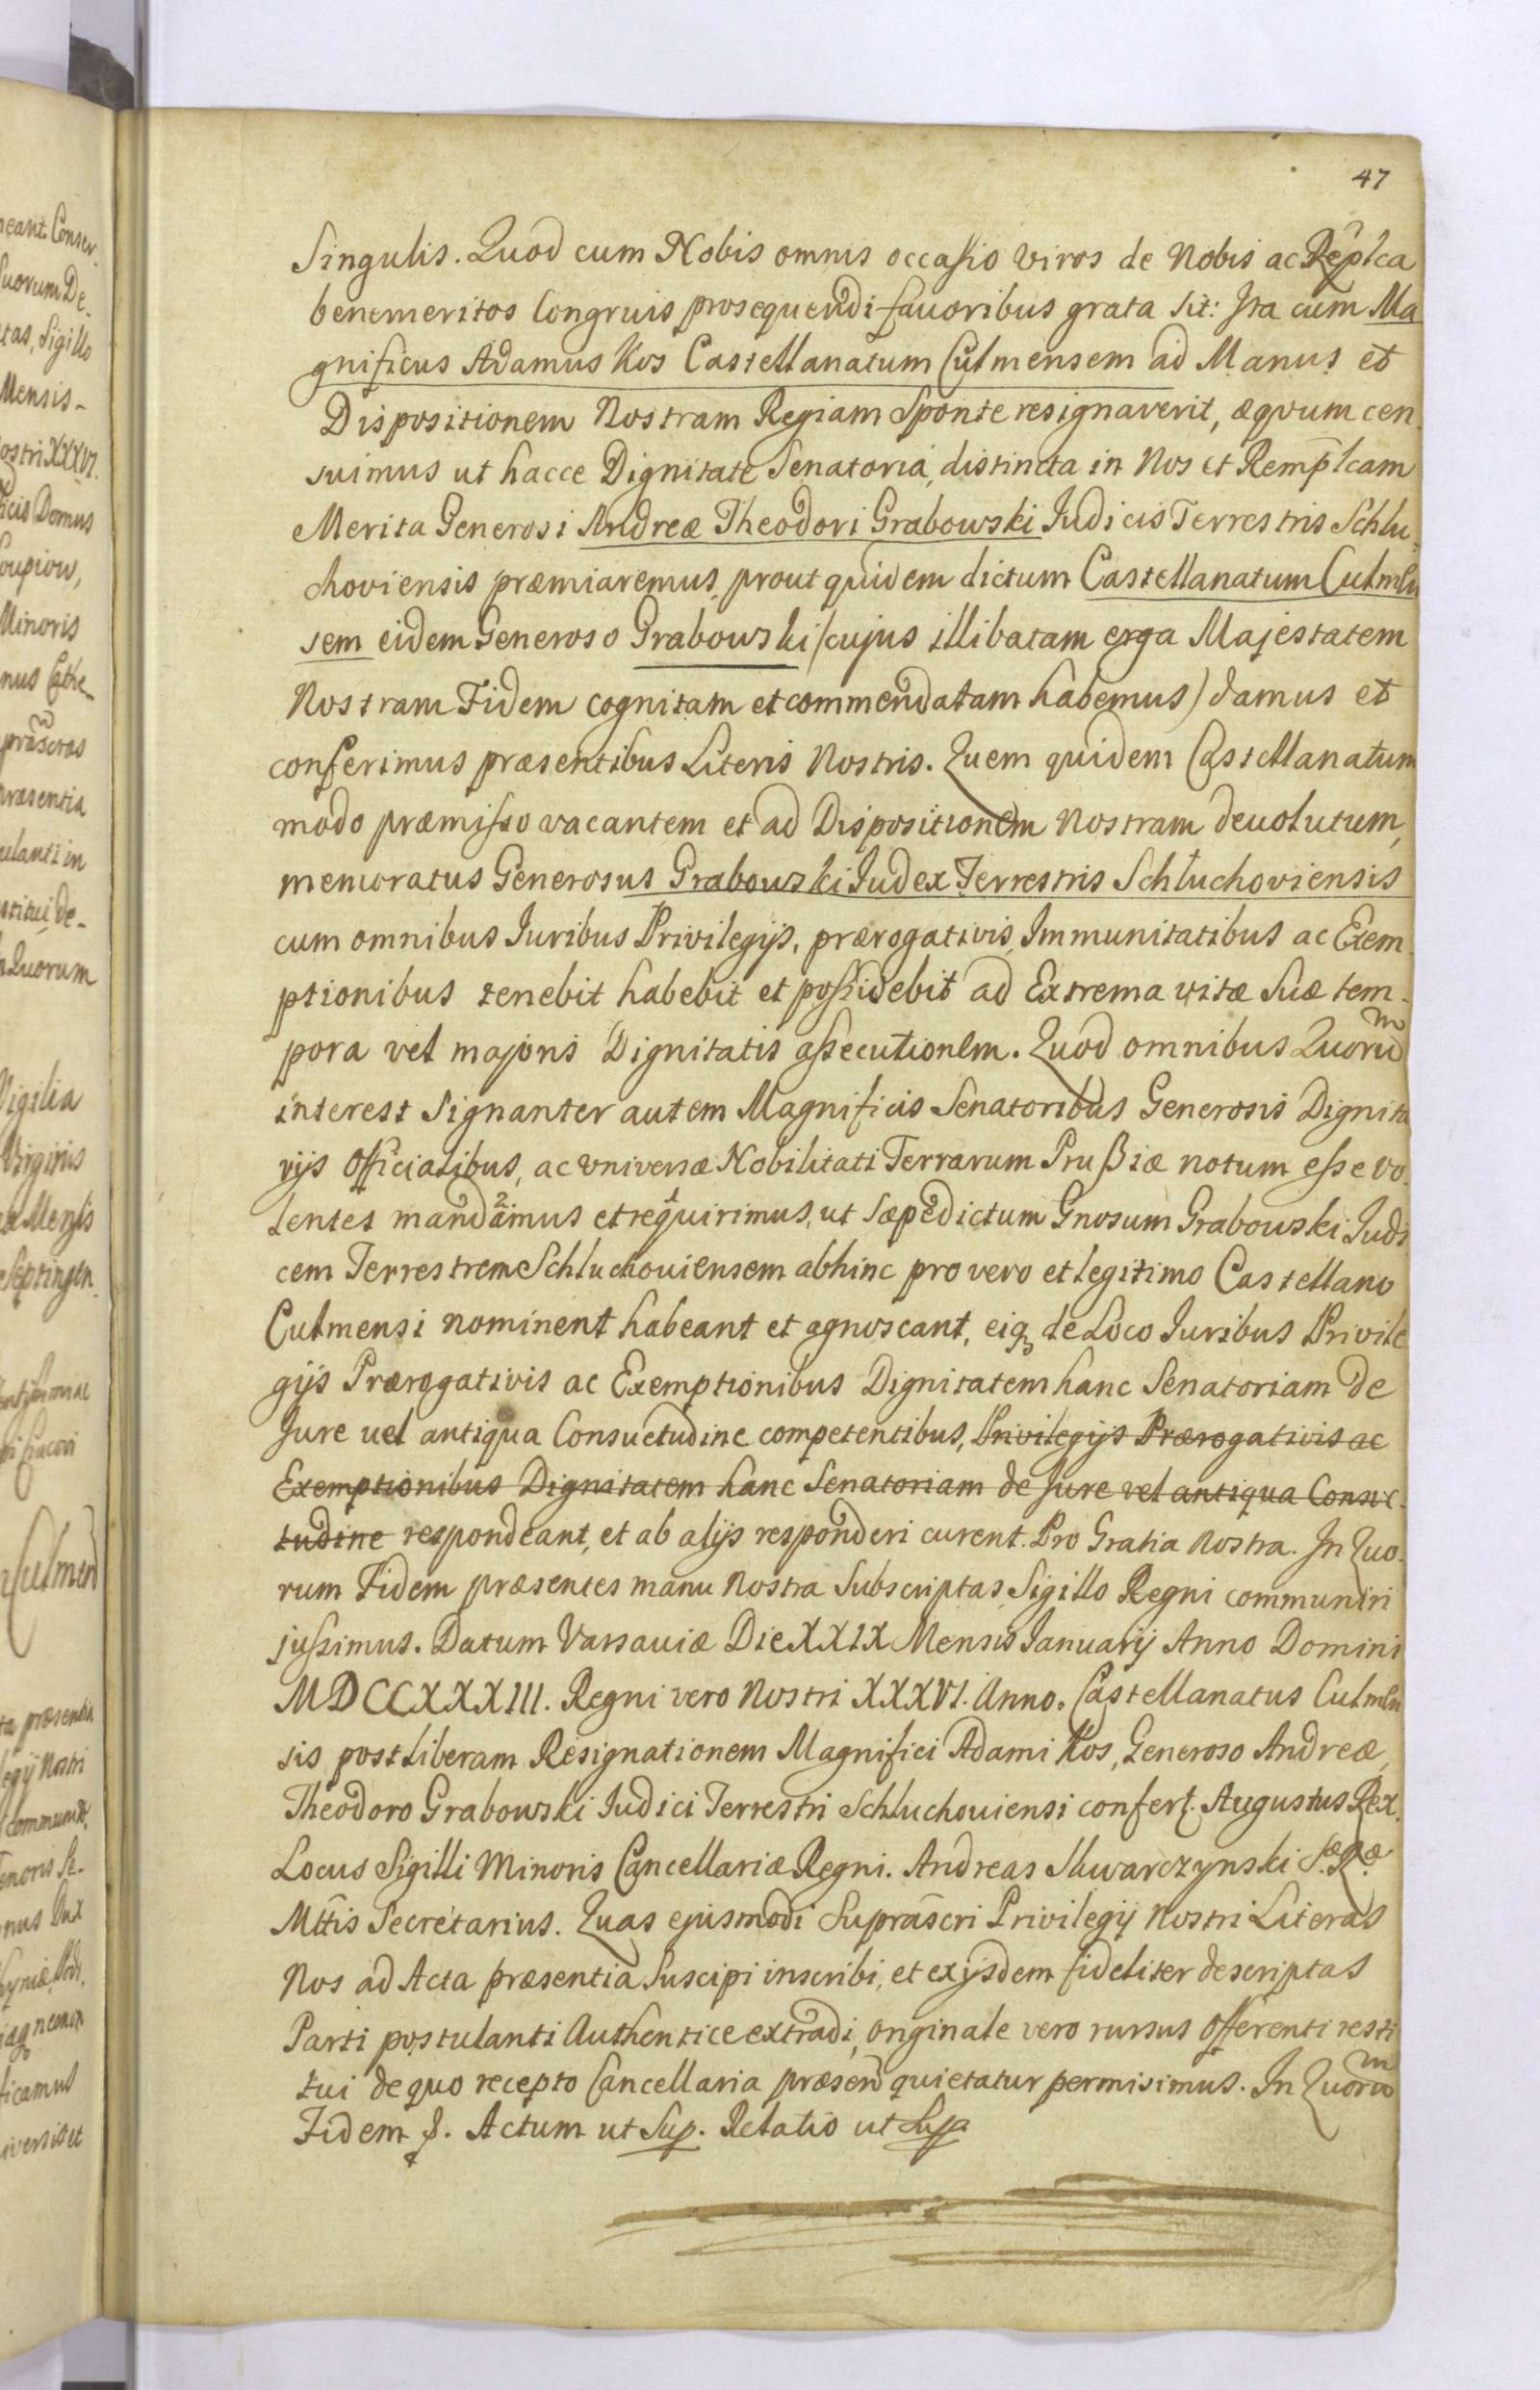 47
Singulis. Quod cum Nobis omnis occasio viros de Nobis ac Replca
benemeritos congruis prosequendi favoribus grata sit: Ita cum Ma
gnificus Adamus Kos Castellanatum Culmensem ad Manus et
Dispositionem Nostram Regiam Sponte resignaverit, æquum cen
suimus ut hacce Dignitate Senatoria, distincta in Nos et Remplcam
Merita Generosi Andreæ Theodori Grabowski Iudicis Terrestris Schlu,
choviensis præmiaremus, prout quidem dictum Castellanatum Culmen
sem eidem Generoso Grabowski (cujus illibatam erga Majestatem
Nostram Fidem cognitam et commendatam habemus) damus et
conferimus præsentibus Literis Nostris. Quem quidem Castellanatum
modo præmisso vacantem et ad Dispositionem Nostram devolutum,
memoratus Generosus Grabowski Iudex Terrestris Schluchoviensis
cum omnibus Iuribus Privilegijs, prærogativis, Immunitatibus ac Exem
ptionibus tenebit habebit et possidebit ad Extrema vitæ Suæ tem-
pora vel majoris Dignitatis assecutionem. Quod omnibus Quorum
interest Signanter autem Magnificis Senatoribus Generosis Dignita
rijs Officialibus, ac universæ Nobilitati Terrarum Prußiæ notum esse vo-
lentes mandamus et requirimus, ut Sæpedictum Gnosum Grabowski Iudi
cem Terrestrem Schluchouiensem abhinc pro vero et legitimo Castellano
Culmensi nominent habeant et agnoscant, eiq de Loco Iuribus Privile
gijs Prærogativis ac Exemptionibus Dignitatem hanc Senatoriam de
Jure vel antiqua Consuetudine competentibus, Privilegijs Prærogativis ac
Exemptionibus Dignitatem hanc Senatoriam de Jure vel antiqua Consue-
tudine respondeant, et ab alijs responderi curent. Pro Gratia Nostra. In Quo-
rum Fidem præsentes manu Nostra Subscriptas, Sigillo Regni communiri
jussimus. Datum Varsauiæ Die XXIX Mensis Ianuarij Anno Domini
MDCCXXXIII. Regni vero Nostri XXXVI. Anno. Castellanatus Culmen
sis post liberam Resignationem Magnifici Adami Kos, Generoso Andreæ,
Theodoro Grabowski Iudici Terrestri Schluchouiensi confert. Augustus Rex.
Locus Sigilli Minoris Cancellariæ Regni. Andreas Skwarczynski S.æ R.æ
Mttis Secretarius. Quas ejusmodi Suprascri Privilegij Nostri Literas
Nos ad Acta præsentia Suscipi inscribi, et ex ijsdem fideliter descriptas
Parti postulanti Authentice extradi, originale vero rursus Offerenti resti
tui de quo recepto Cancellaria præsen quietatur permisimus. In Quorum
Fidem &. Actum ut Sup. Relatio ut Supa